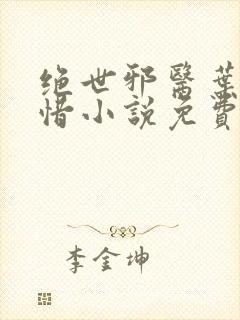 绝世邪醫葉
惜小説免費
李金坤